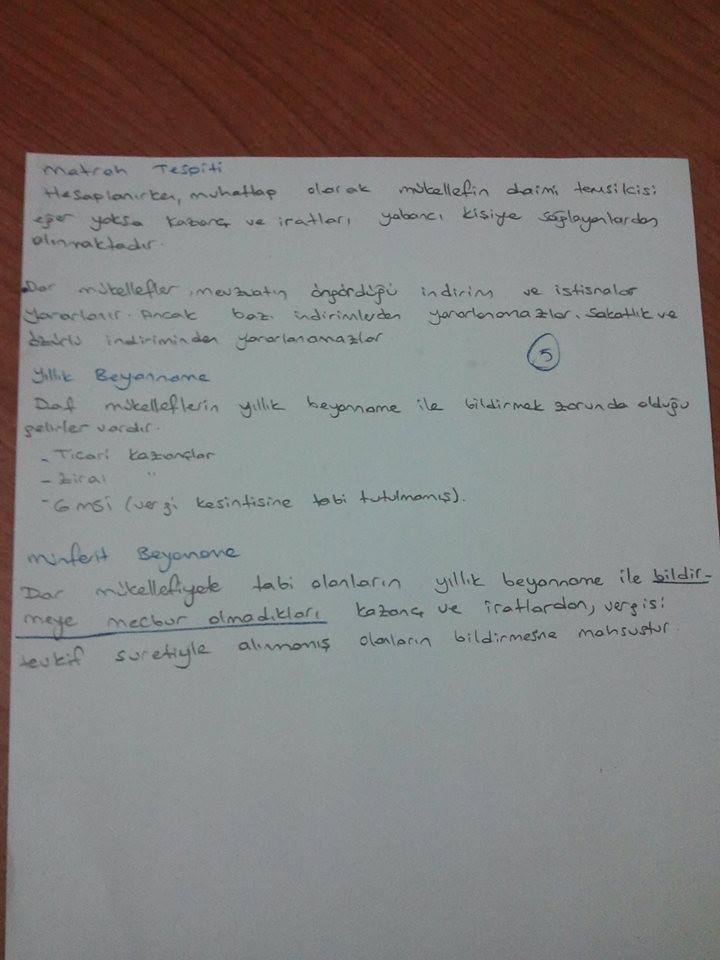 Matrah Tespiti
Hesaplanırken, muhattap olarak mükellefin daimi temsilcisi
eğer yoksa kazanç ve iratları yabancı kişiye sağlayanlardan
alınmaktadır.
Dar mükellefler, mevzuatın öngördüğü indirim ve istisnalar
yararlanır. Ancak bazı indirimlerden yararlanamazlar. Sakatlık ve
özürlü indiriminden yararlanamazlar
5
Yıllık Beyanname
Dar mükelleflerin yıllık beyanname ile bildirmek zorunda olduğu
gelirler vardır.
- Ticari kazançlar
- Zirai "
- GMSİ (vergi kesintisine tabi tutulmamış).
Münferit Beyanname
Dar mükellefiyete tabi olanların yıllık beyanname ile bildir-
meye mecbur olmadıkları kazanç ve iratlardan, vergisi
tevkif suretiyle alınmamış olanların bildirmesne mahsustur.